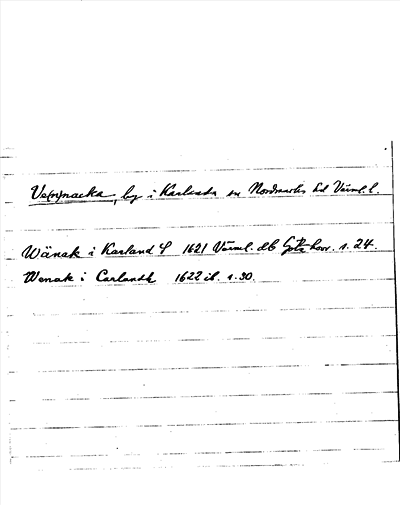 Ve(n)nacka, by i Karlanda sn Nordmarks hd Värml. l.
Wänak i Karland S 1621 Värml. db s. 24.
Wenak i Carlandh 1622 ib. s. 30.